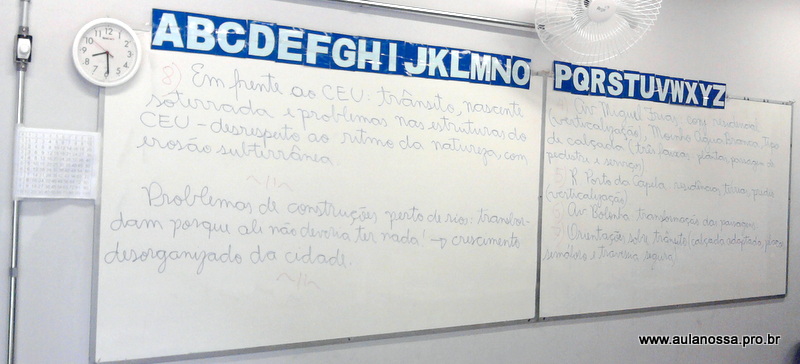 ABCDEFGHIJKLMNO
PQRSTUVWXYZ
8) Em frente ao CEU: trânsito, nascente
soterrada e problemas nas estruturas do
CEU - desrespeito ao ritmo da natureza, com
erosão subterrânea
Problemas de construções perto de rios: transbor-
dam porque ali não deveria ter nada! → crescimento
desorganizado da cidade.
Av Miguel
(verticalização), Moinho Água Branca, tipo
de calçada (três faixas: planta, passagem de
pedestre e serviço)
R. Porto da Capela: residências, terra, prédios
(verticalização)
Av transformação da paisagem
Orientações sobre trânsito (calçada adaptada, placas,
semáforo e travessia segura)
www.aulanossa.pro.br